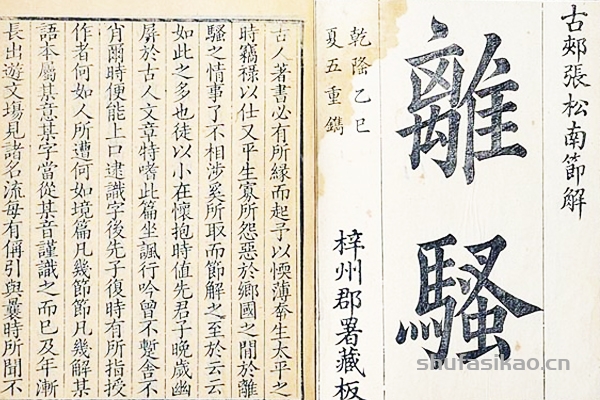 古郟張松南節解
離騷
乾隆乙巳
夏五重鐫
梓州郡署藏板
古人著書必有所緣而起予以愞薄奉生太平之
時竊祿以仕又平生寡所怨惡於鄉國之閒於離
騷之情事了不相涉奚所取而節解之至於云云
如此之多也徒以小在懷抱時值先君子晚歲幽
屏於古人文章特嗜此篇坐諷行吟曾不蹔舍不
肖爾時便能上口逮識字後先子復時有所指授
作者何如人所遭何如境篇凡幾節節凡幾解某
語本屬某意某字當從某音謹識之而已及年漸
長出遊文場見諸名流每有稱引與曩時所聞不
shufasikao.cn